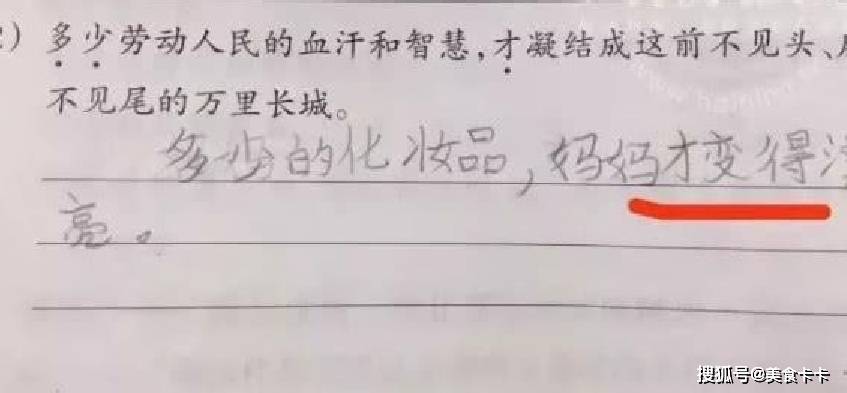 2）多少劳动人民的血汗和智慧，才凝结成这前不见头、
不见尾的万里长城。
多少的化妆品，妈妈才变得
亮。
搜狐号@美食卡卡